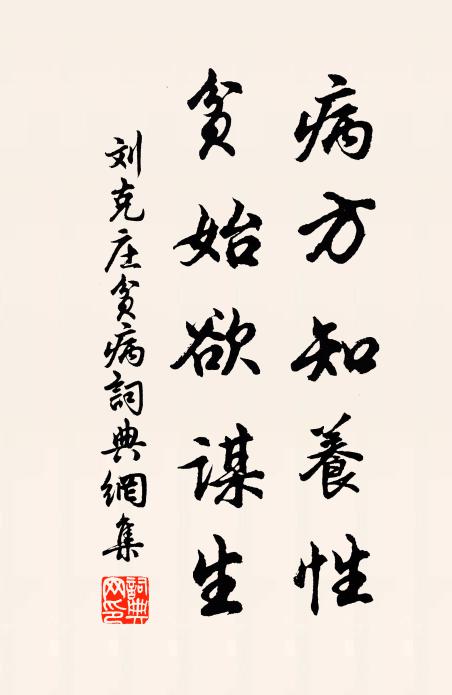 病方知養性
貧始欲謀生
刘克庄貧病詞典網集
詞典網印